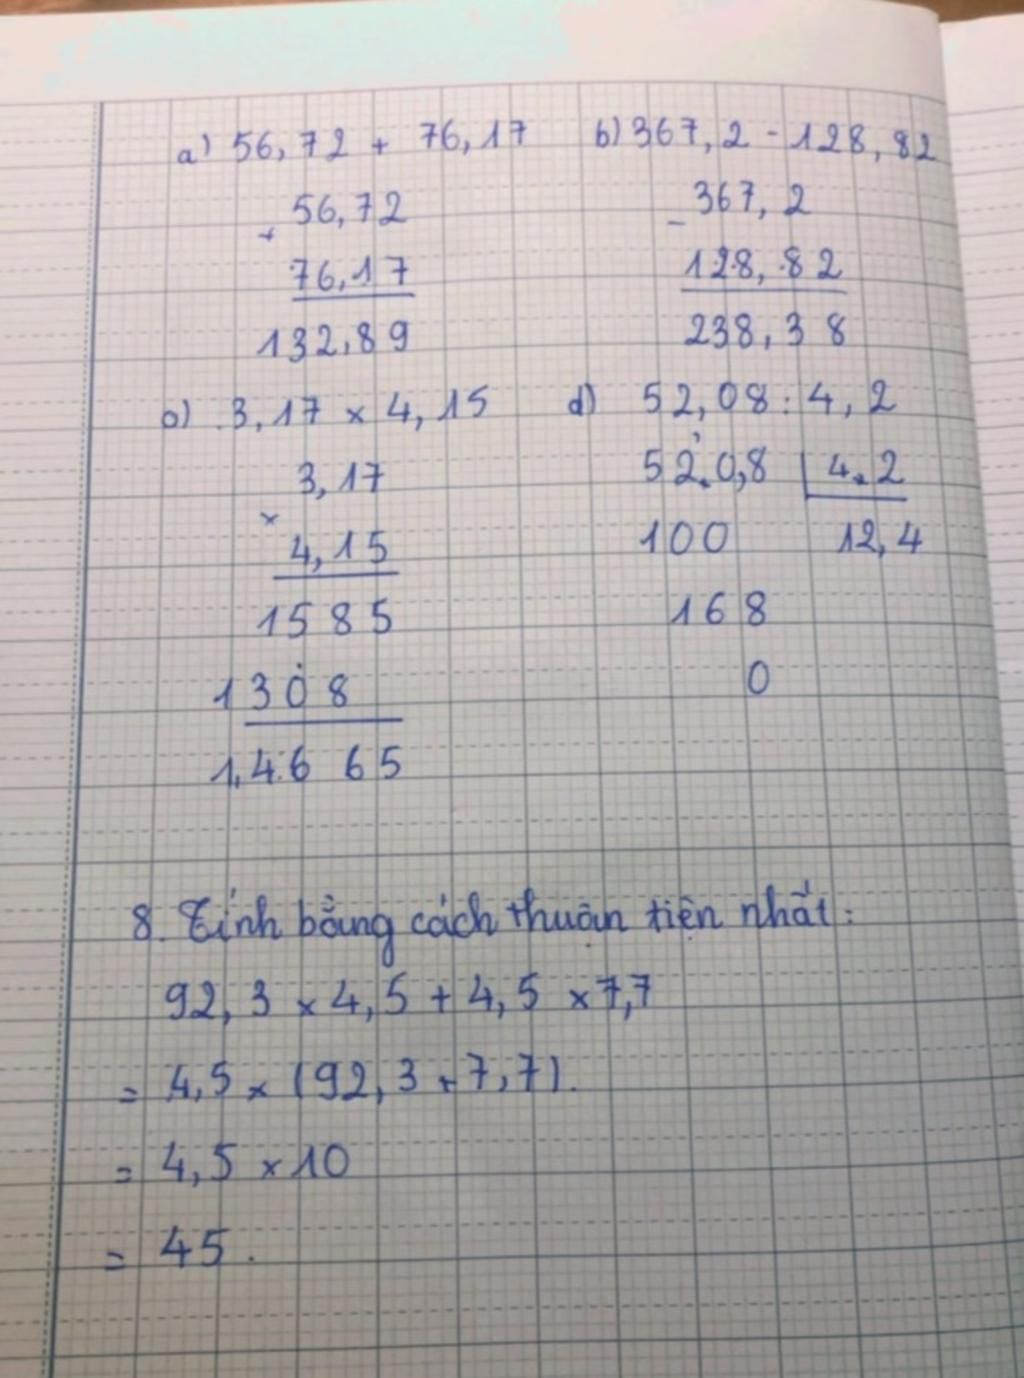 a) 56,72 + 76,17 b) 367,2 - 128,82
56,72 367,2
+ -
76,17 128,82
132,89 238,38
c) 3,17 x 4,15 d) 52,08 : 4,2
3,17 52,0,8 4,2
x
4,15 100 12,4
1585 168
1308 0
1,4665
8. Tính bằng cách thuận tiện nhất:
92,3 x 4,5 + 4,5 x 7,7
= 4,5 x (92,3 + 7,7).
= 4,5 x 10
= 45.